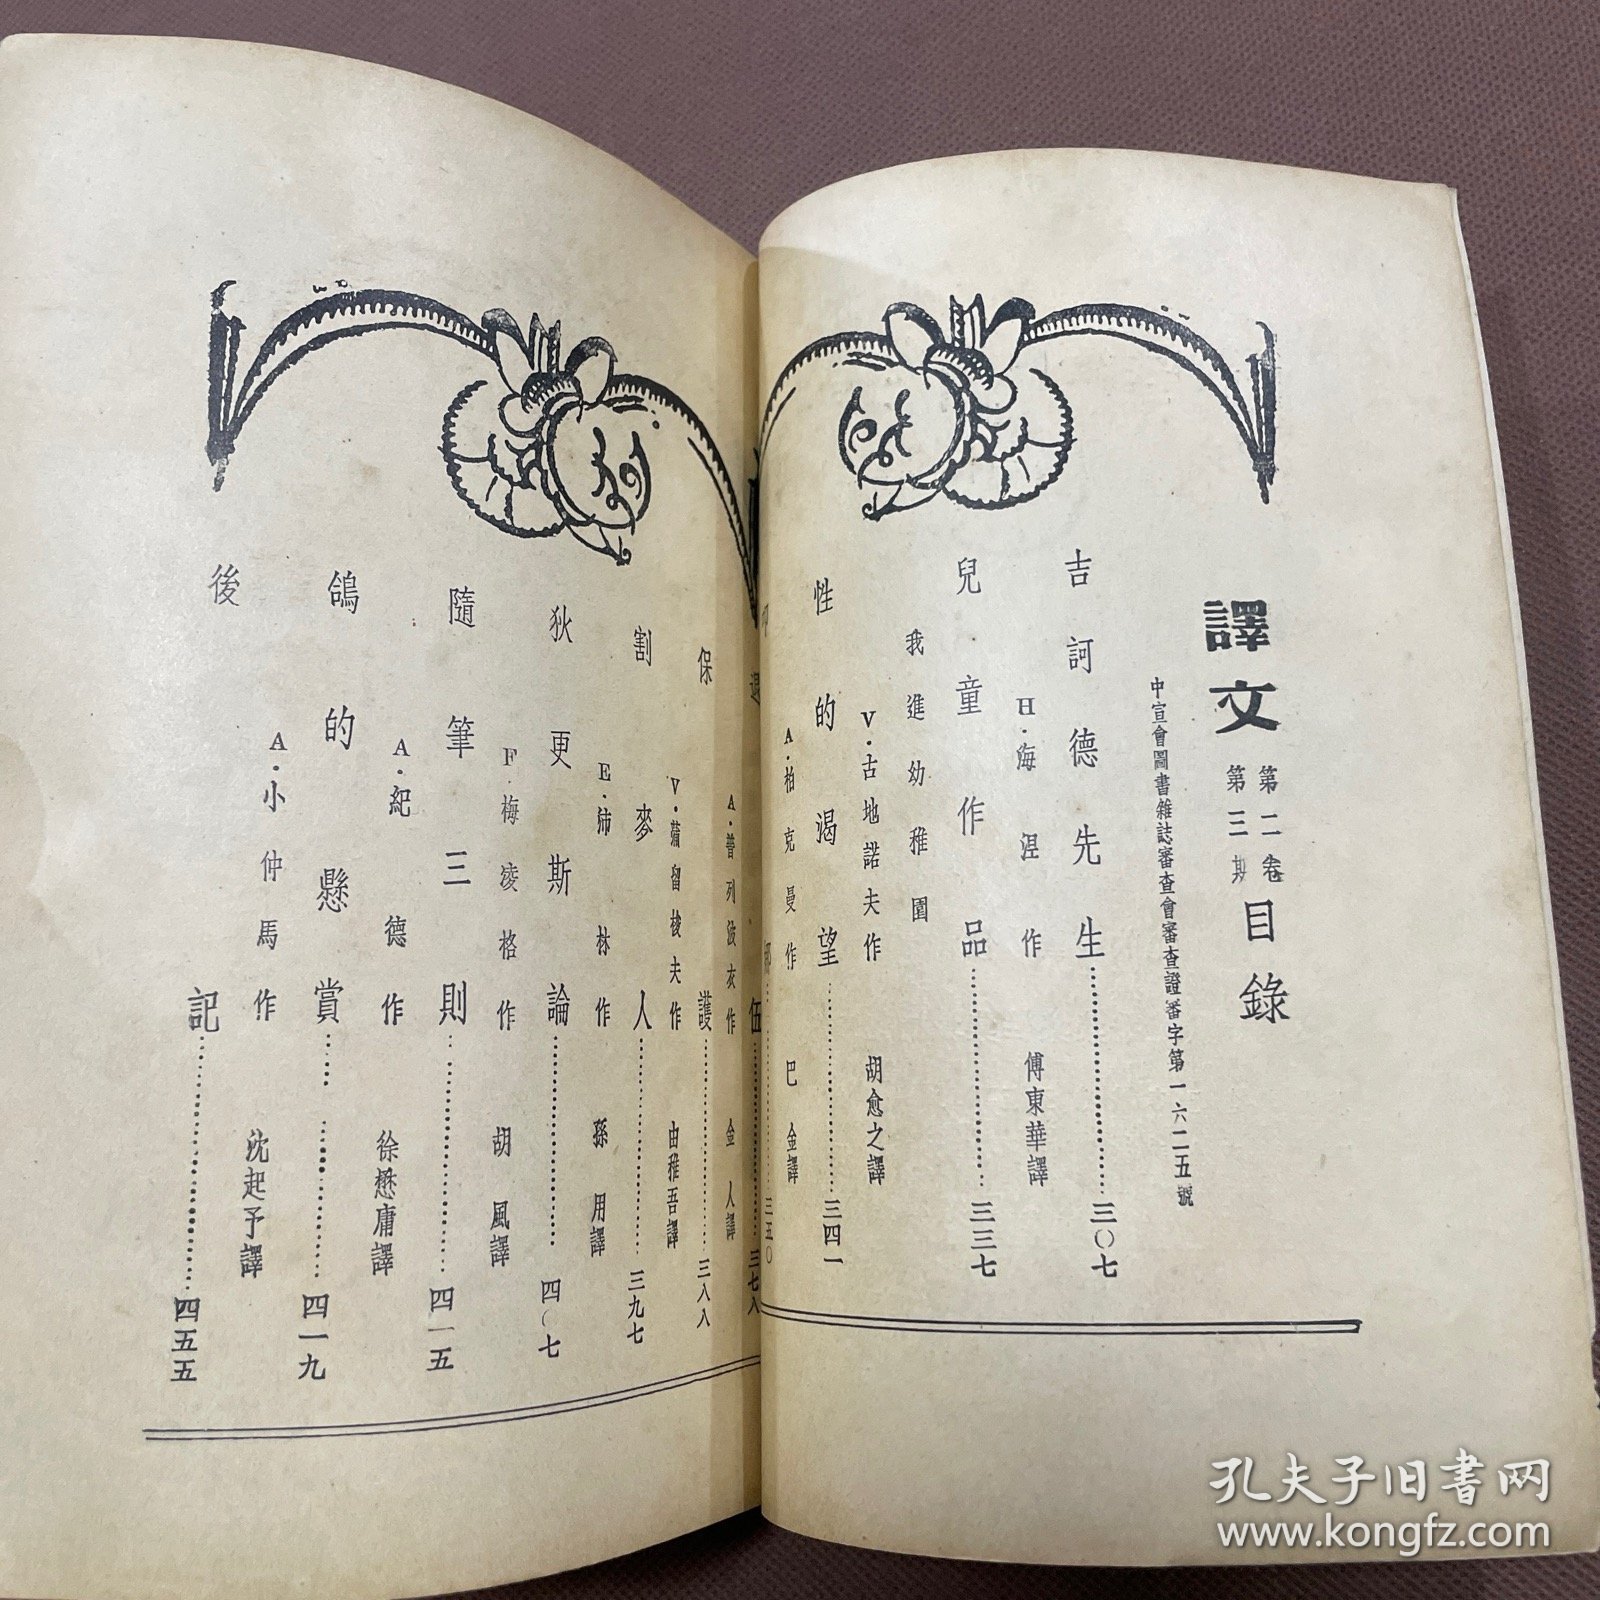 譯文第二卷第三期目錄
中宣會圖書雜誌審查會審查證審字第一六二五號
吉訶德先生……三〇七
H·海涅作 傅東華譯
兒童作品……三三七
我進幼稚園
V·古地諾夫作 胡愈之譯
性的渴望……三四一
A·柏克曼作 巴金譯
三五〇
伍……三七八
A·普列波衣作 金人譯
保護……三八八
V·蒲留梭夫作 由稚吾譯
割麥人……三九七
E·沛林作 孫用譯
狄更斯論……四〇七
F·梅凌格作 胡風譯
隨筆三則……四一五
A·紀德作 徐懋庸譯
鴿的懸賞……四一九
A·小仲馬作 沈起予譯
後記……四五五
孔夫子旧书网
www.kongfz.com